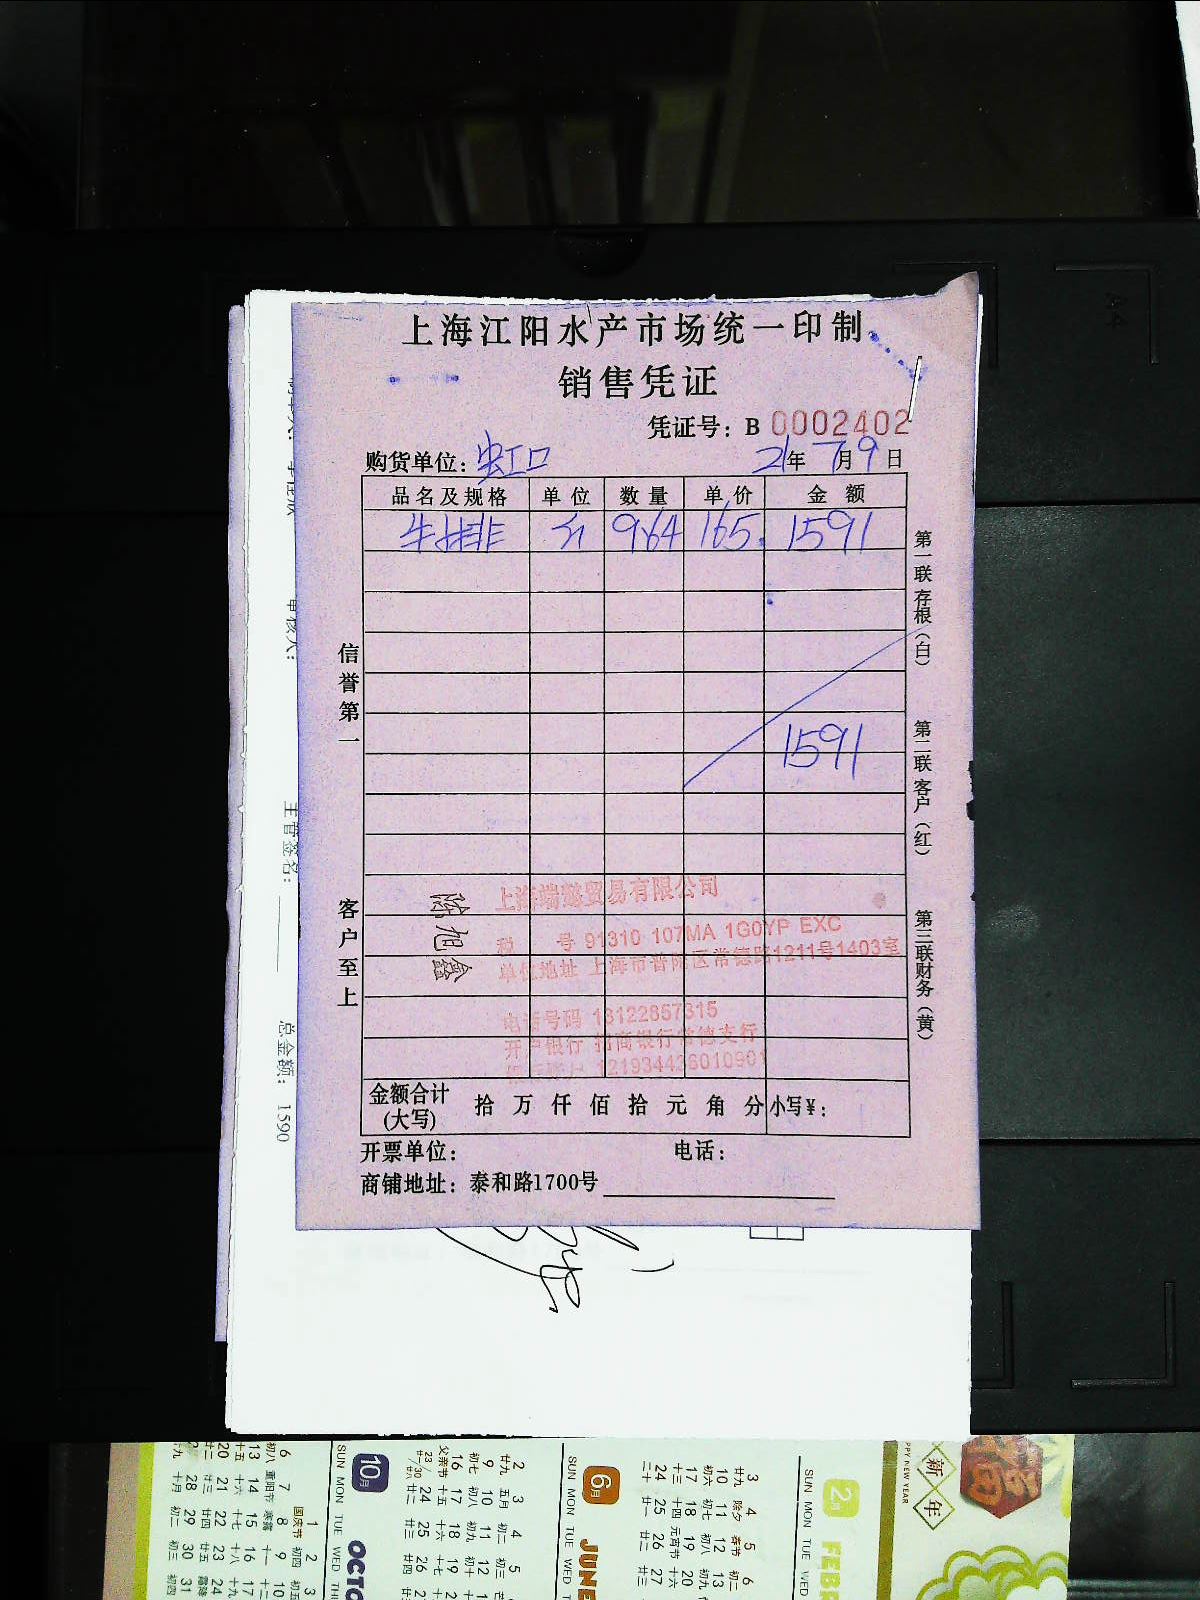 上海江阳水产市场统一印制
销售凭证
凭证号：B 0002402
购货单位：虹口 21年7月9日
品名及规格 单位 数量 单价 金额
牛排 斤 964 165. 1591
1591
信誉第一
客户至上
第一联存根（白）
第二联客户（红）
第三联财务（黄）
陈旭鑫
上海端懿贸易有限公司
税 号 91310 107MA 1G0YP EXC
单位地址 上海市普陀区常德路1211号1403室
电话号码 18122857315
开户银行 招商银行常德支行
121934436010901
金额合计(大写) 拾 万 仟 佰 拾 元 角 分 小写¥：
开票单位： 电话：
商铺地址：泰和路1700号
审核人：
主管签名：
总金额：1590
10月 OCTO
SUN MON TUE WED
6月 JUNE
SUN MON TUE WED
2月 FEBR
SUN MON TUE WED
新年
PPY NEW YEAR
福